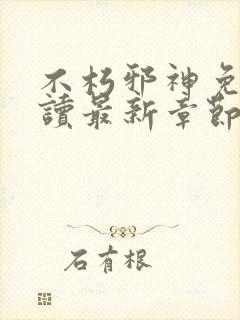 不朽邪神免
讀最新章節
石有根